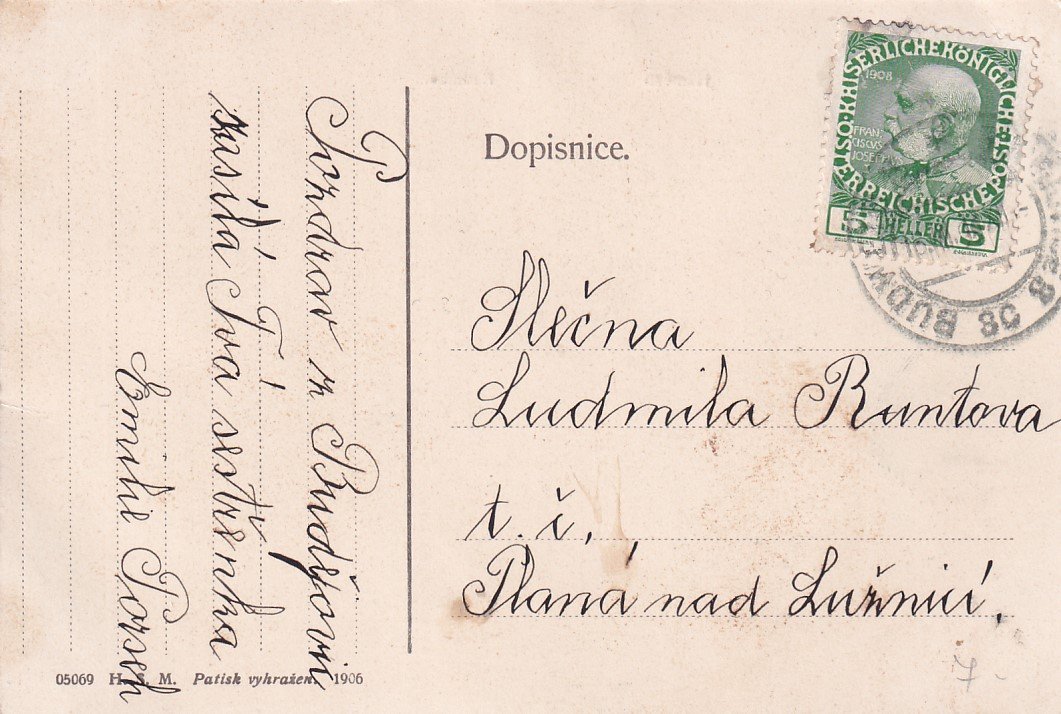 Dopisnice.
1908
KAISERLICHE KÖNIGLICHE ÖSTERREICHISCHE POST
FRAN
CISCVS
JOSEPH
5 HELLER 5
BUDW
Pozdrav z Budějovic
zasílá Tvá sestřenka
Emilie
Slečna
Ludmila Runtova
t. č.
Planá nad Lužnicí.
05069 H. S. M. Patisk vyhražen. 1906
7